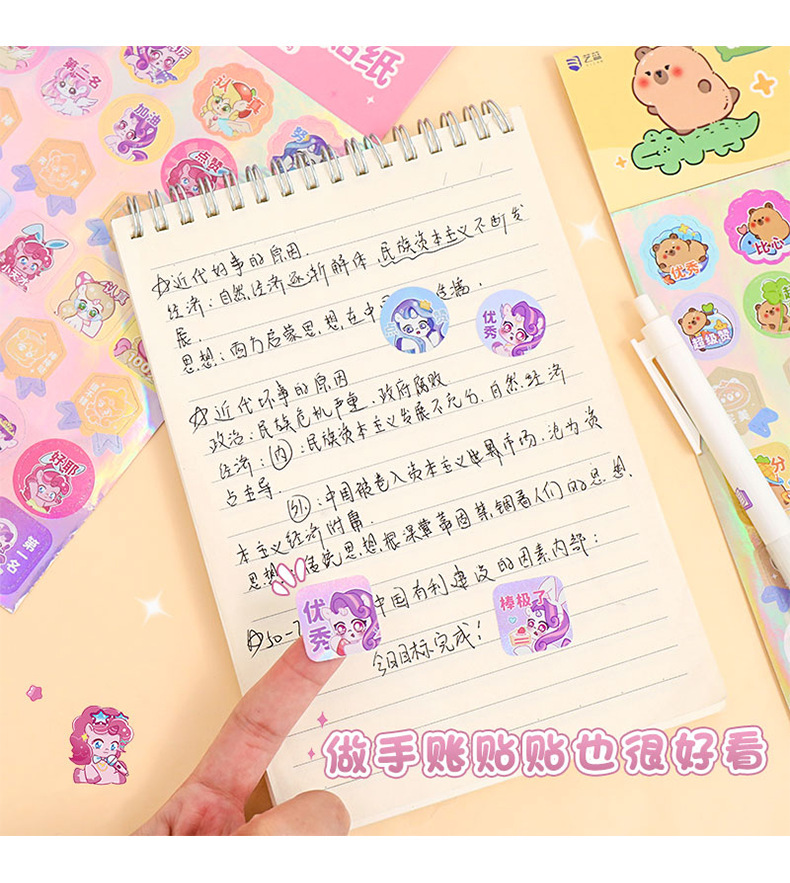 贴纸
艺蓝
第一名
加油
点赞
认真
优秀
比心
超级赞
好耶
第一名
100
分
☆近代好事的原因
经济：自然经济逐渐解体，民族资本主义不断发
展.
思想：西方启蒙思想，在中 传播.
优秀
☆近代坏事的原因
政治：民族危机严重，政府腐败
经济：内：民族资本主义发展不充分，自然经济
占主导.
外：中国被卷入资本主义世界市场，沦为资
本主义经济附庸.
思想：传统思想根深蒂固禁锢着人们的思想.
☆50-7 中国有利建设的因素内部：
优秀
棒极了
今日目标完成！
做手账贴贴也很好看